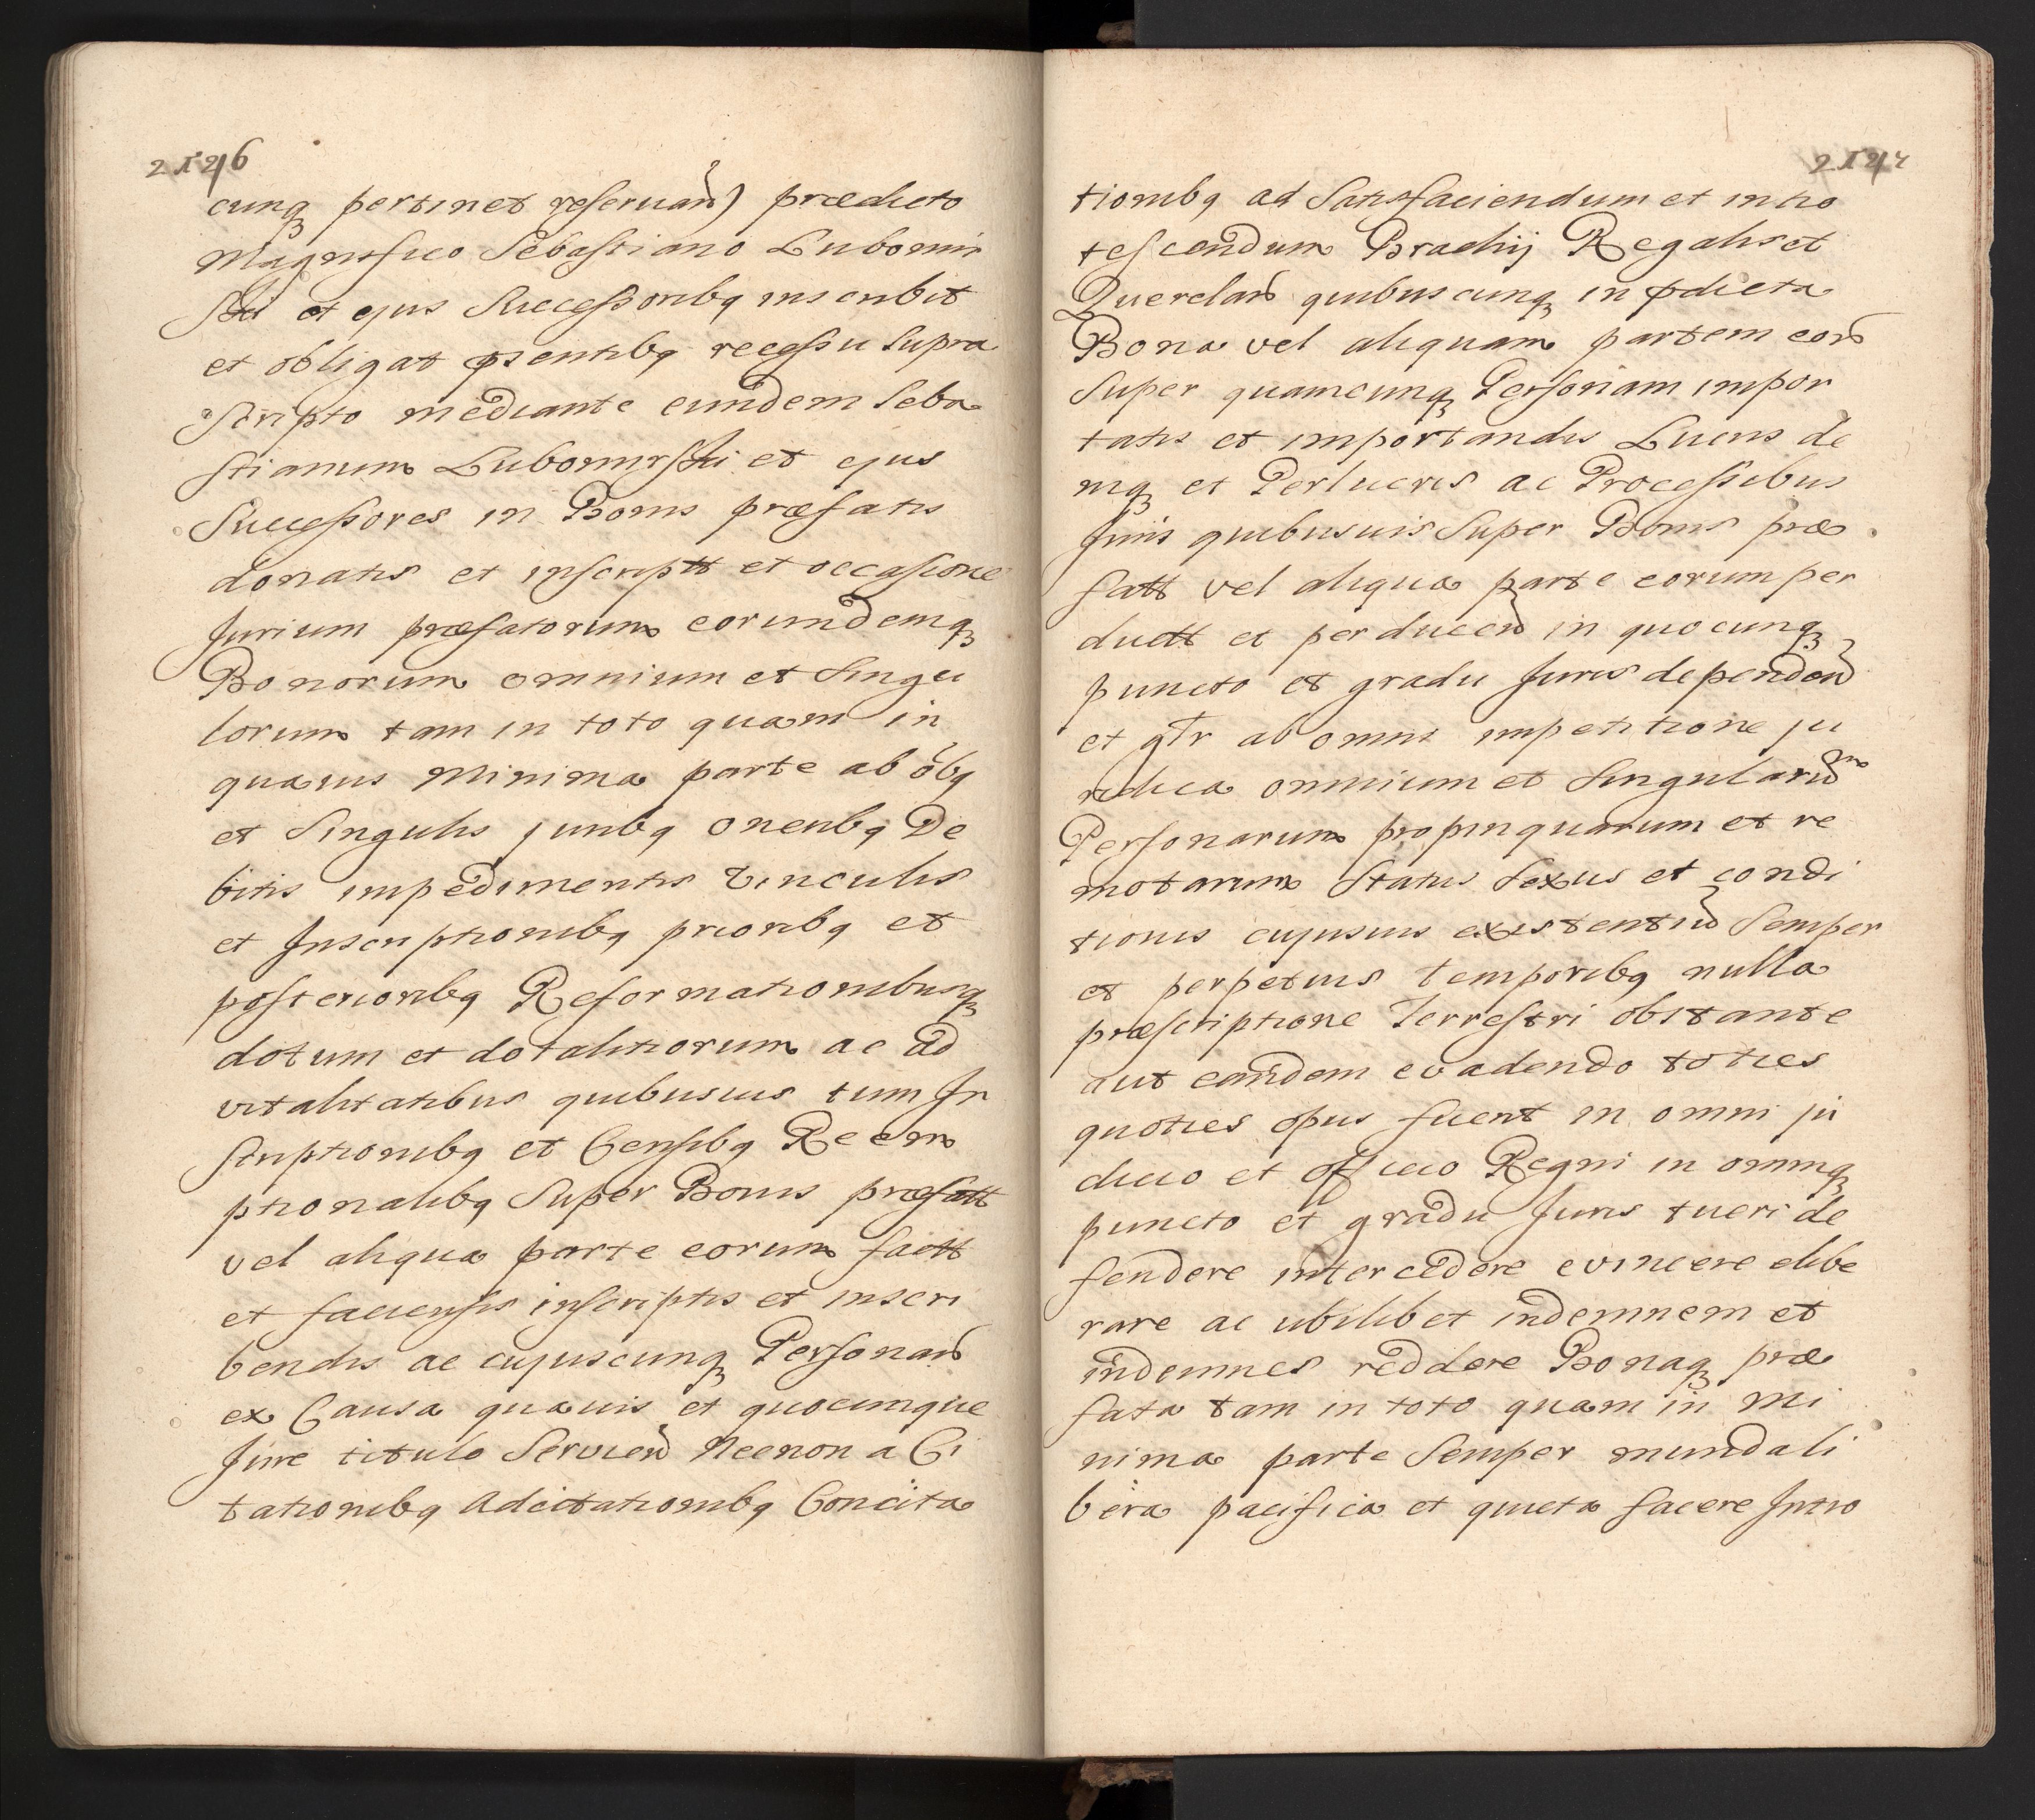 2126
cunq pertinet reseruan̄) prædicto
Magnifico Sebastiano Lubomir
ski et ejus Successoribq inscribit
et obligat psentibq recessu supra
scripto mediante eundem Seba
stianum Lubomirski et ejus
Successores in Bonis præfatis
donatis et inscriptt et occasione
Jurium præfatorum eorundemq
Bonorum omnium et Singu
lorum tam in toto quam in
quauis Minima parte ab oībq
et Singulis juribq oneribq De
bitis impedimentis Vinculis
et Inscriptionibq prioribq et
posterioribq Reformationibusq
dotum et dotalitiorum ac ad
vitalitatibus quibusuis tum In
scriptionibq et Censibq Reem
ptionalibq Super Bonis præfatt
vel aliqua parte eorum factt
et faciensis inscriptis et inscri
bendis ac cujuscunq Personar̄
ex Causa quauis et quocumque
Jure titulo Servien̄ Necnon a Ci
tationibq Adcitationibq Concita
2127
tionibq ad Satisfaciendum et inno
tescendum Brachij Regalis et
Querelar̄ quibuscunq in pdicta
Bona vel aliquam partem eor̄
Super quamcunq Personam impor
tatis et importandis Lucris de
niq et Perlucris ac Processibus
Juris quibusuis Super Bonis præ
fatt vel aliqua parte eorum per
ductt et perducen̄ in quocunq
puncto et gradu Juris dependen̄
et gtr ab omni impetitione ju
ridica omnium et Singularum
Personarum propinquarum et re
motarum Status Sexus et condi
tionis cujusuis existentiū Semper
et perpetuis temporibq nulla
præscriptione Terrestri obstante
aut eandem evadendo toties
quoties opus fuerit in omni ju
dicio et officio Regni in omniq
puncto et gradu Juris tueri de
fendere intercedere evincere elibe
rare ac ubilibet indemnem et
indemnes reddere Bonaq præ
fata tam in toto quam in mi
nima parte Semper munda li
bera pacifica et quieta facere Intro